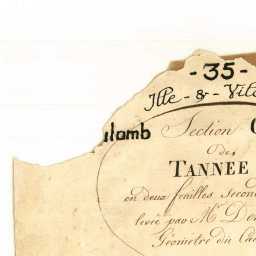 - 35 -
Ille - & - Vil
Section
de
TANNEE
en deux feuilles Secon
levée par Mr. De
Géomètre du Ca